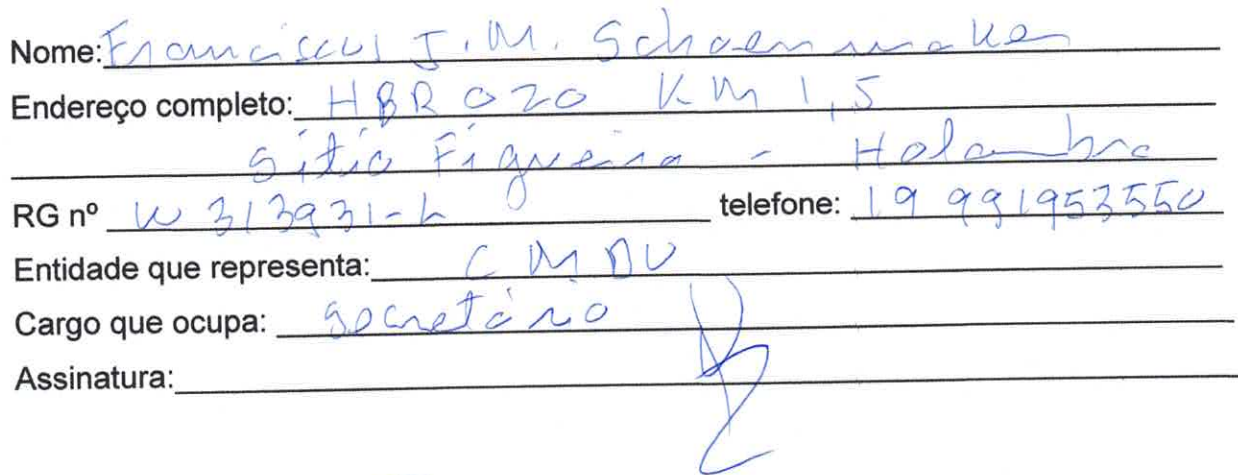 Nome: Franciscus J. M. Schoenmaker
Endereço completo: HBR 020 KM 1,5
Sítio Figueira - Holambra
RG nº W 313931-L telefone: 19 991953550
Entidade que representa: CMDU
Cargo que ocupa: secretário
Assinatura: